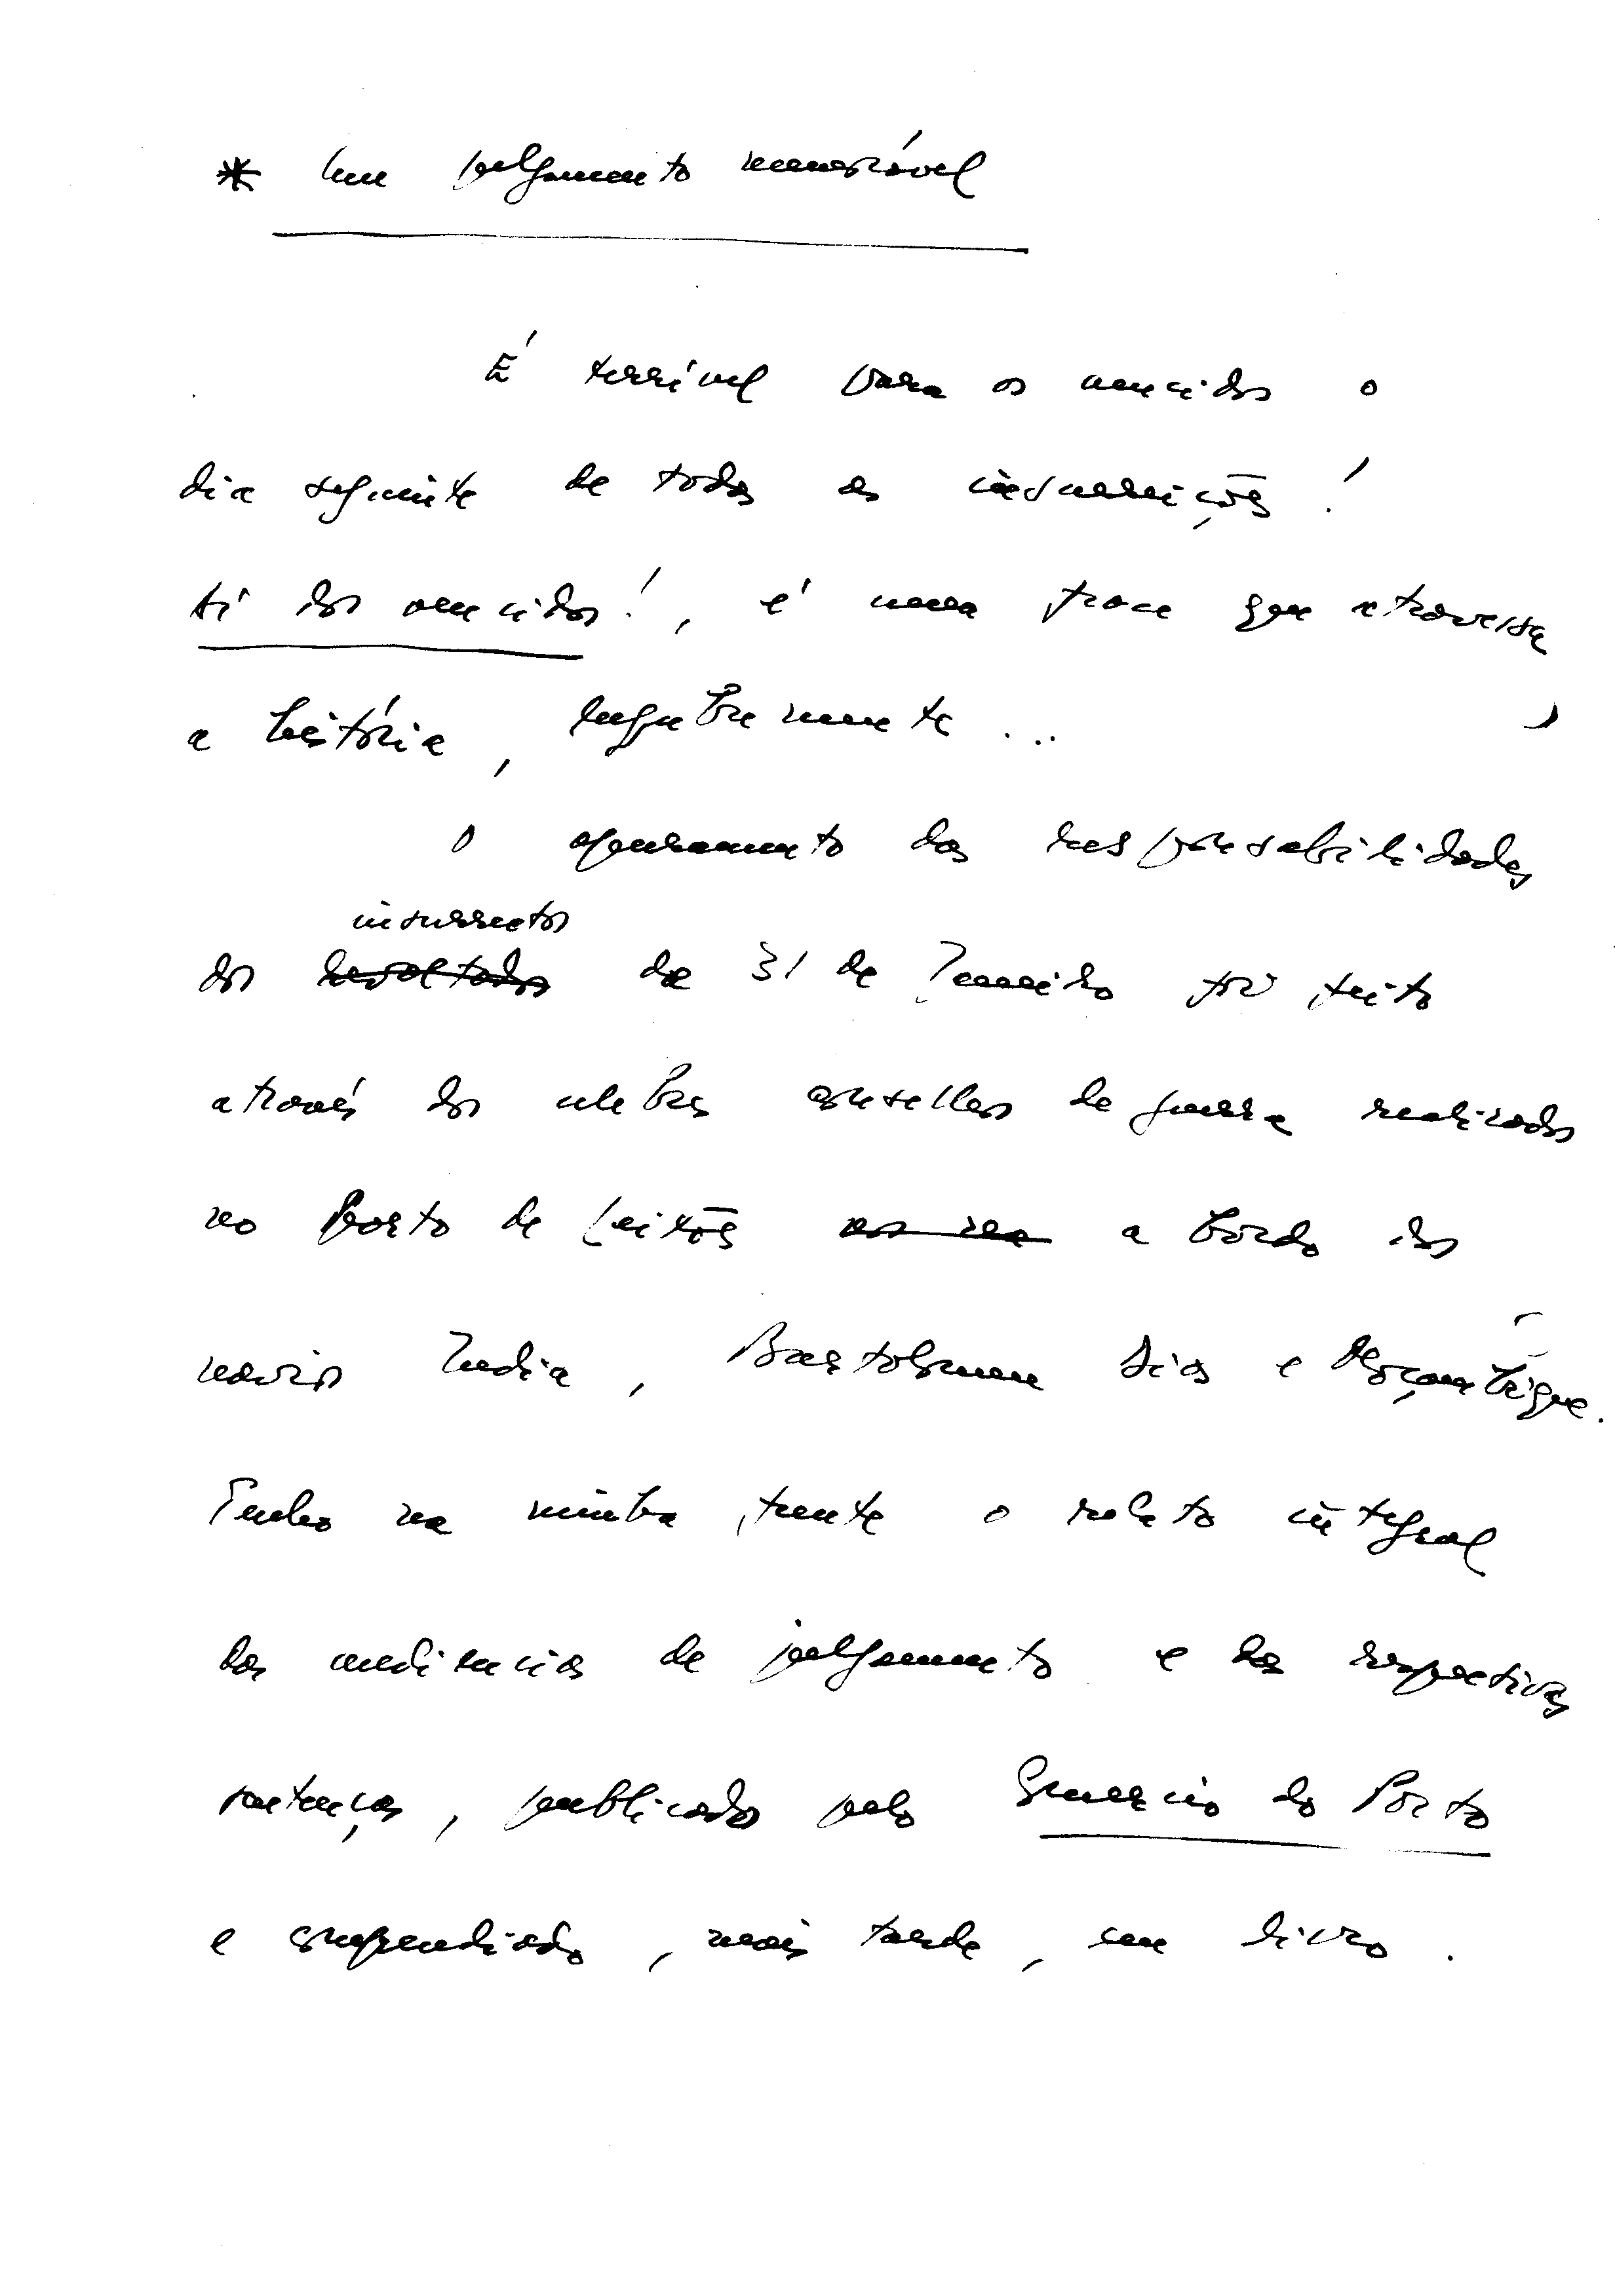 * Um julgamento memorável
É terrível para os vencidos o
dia seguinte de todas as insurreições!
Ai dos vencidos!, é uma frase que atravessa
a história, lugubremente...
O apuramento das responsabilidades
insurrectos
dos revoltados de 31 de Janeiro foi feito
através dos celebres conselhos de guerra realizados
no Porto de Leixões a bordo dos
navios India, Bartolomeu Dias e Moçambique.
Tenho na minha frente o relato integral
das audiencias de julgamento e das respectivas
sentenças, publicado pelo Comercio do Porto
e compendiado, mais tarde, em livro.